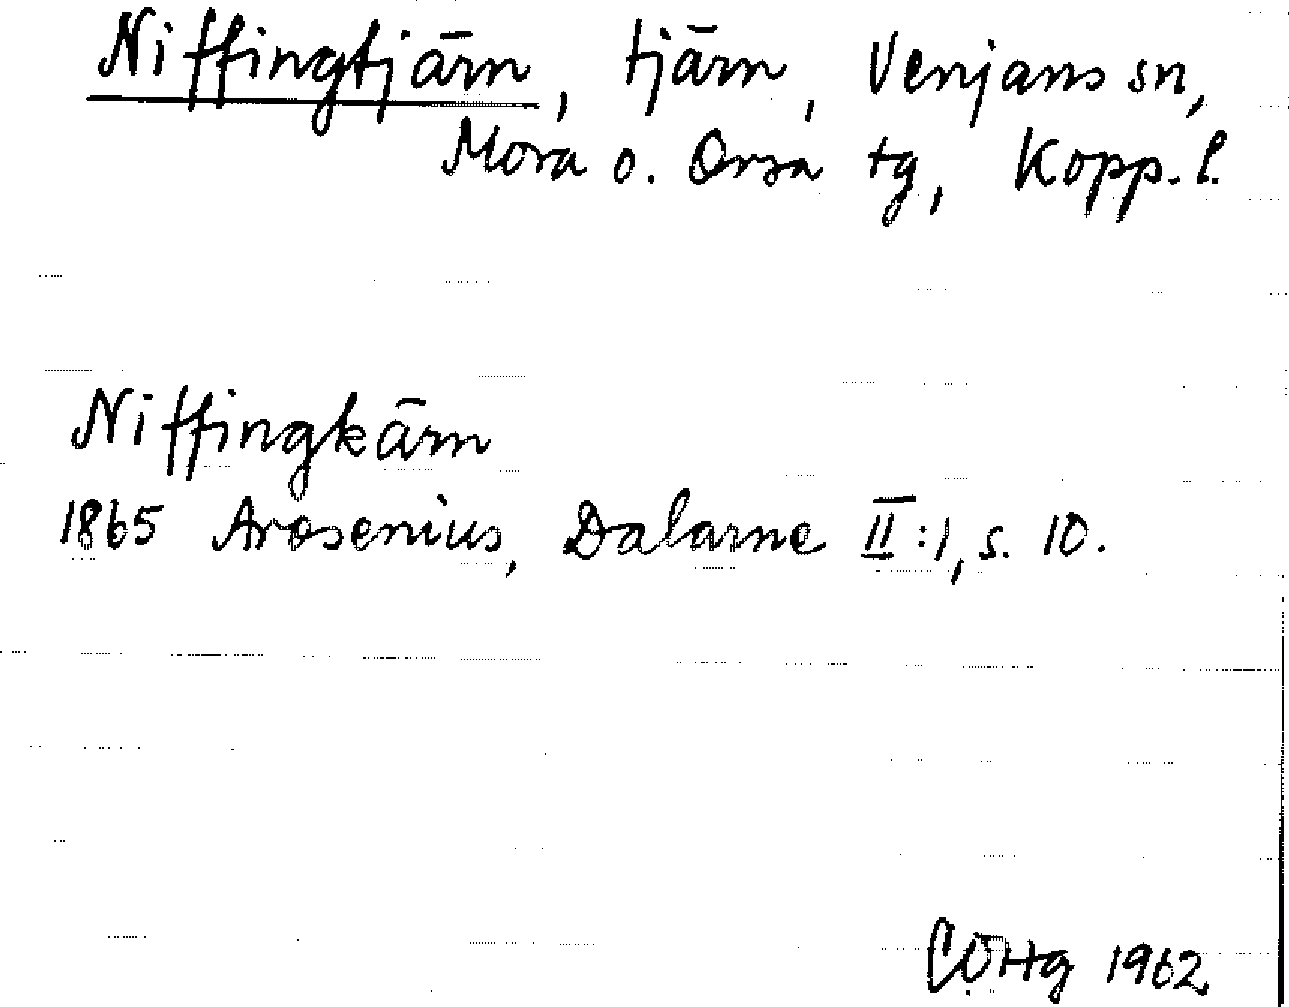 Niffingtjärn, tjärn, Venjans sn,
Mora o. Orsa tg, Kopp. l.
Niffingkärn
1865 Arosenius, Dalarne II:1, s. 10.
CÖHg 1962